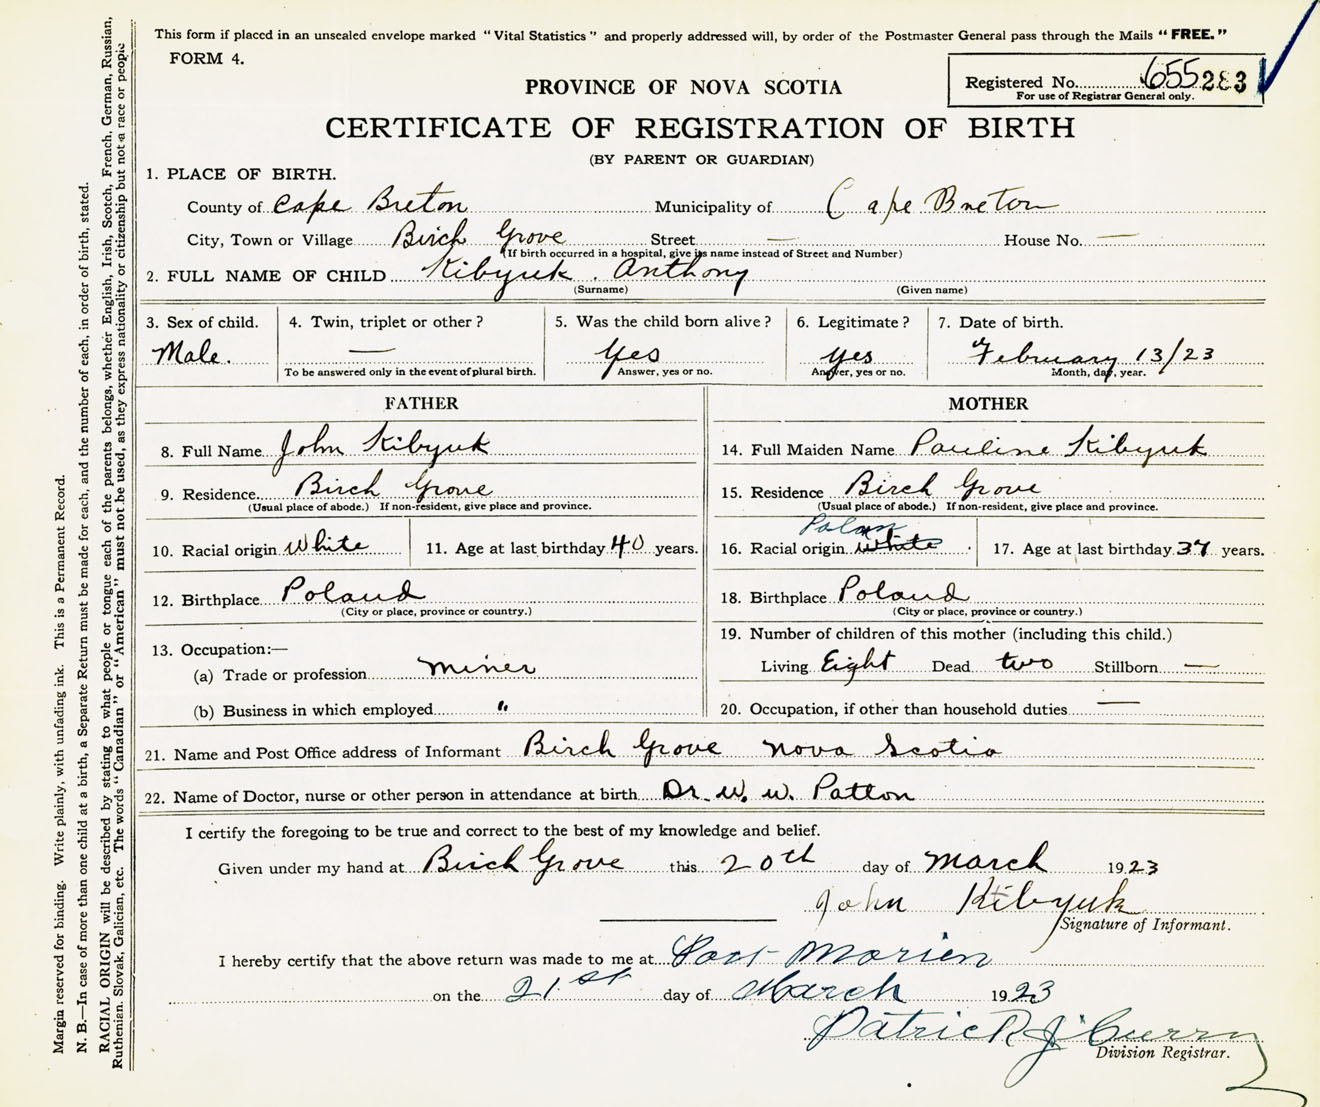 This form if placed in an unsealed envelope marked "Vital Statistics" and properly addressed will, by order of the Postmaster General pass through the Mails "FREE."
FORM 4.
Registered No. 655283
For use of Registrar General only.
PROVINCE OF NOVA SCOTIA
CERTIFICATE OF REGISTRATION OF BIRTH
(BY PARENT OR GUARDIAN)
1. PLACE OF BIRTH.
County of Cape Breton Municipality of Cape Breton
City, Town or Village Birch Grove Street — House No. —
(If birth occurred in a hospital, give its name instead of Street and Number)
2. FULL NAME OF CHILD Kibyuk . Anthony
(Surname) (Given name)
3. Sex of child. 4. Twin, triplet or other? 5. Was the child born alive? 6. Legitimate? 7. Date of birth.
Male. — Yes Yes February 13/23
To be answered only in the event of plural birth. Answer, yes or no. Answer, yes or no. Month, day, year.
FATHER
8. Full Name John Kibyuk
9. Residence. Birch Grove
(Usual place of abode.) If non-resident, give place and province.
10. Racial origin White 11. Age at last birthday 40 years.
12. Birthplace Poland
(City or place, province or country.)
13. Occupation:—
(a) Trade or profession miner
(b) Business in which employed "
MOTHER
14. Full Maiden Name Pauline Kibyuk
15. Residence Birch Grove
(Usual place of abode.) If non-resident, give place and province.
16. Racial origin White 17. Age at last birthday 37 years.
18. Birthplace Poland
(City or place, province or country.)
19. Number of children of this mother (including this child.)
Living Eight Dead two Stillborn —
20. Occupation, if other than household duties —
21. Name and Post Office address of Informant Birch Grove Nova Scotia
22. Name of Doctor, nurse or other person in attendance at birth Dr. W. W. Patton
I certify the foregoing to be true and correct to the best of my knowledge and belief.
Given under my hand at Birch Grove this 20th day of March 1923
John Kibyuk
Signature of Informant.
I hereby certify that the above return was made to me at Port Morien
on the 21st day of March 1923
Patrick J. Curry
Division Registrar.
Margin reserved for binding. Write plainly, with unfading ink. This is a Permanent Record.
N. B.—In case of more than one child at a birth, a Separate Return must be made for each, and the number of each, in order of birth, stated.
RACIAL ORIGIN will be described by stating to what people or tongue each of the parents belongs, whether English, Irish, Scotch, French, German, Russian,
Ruthenian, Slovak, Galician, etc. The words "Canadian" or "American" must not be used, as they express nationality or citizenship but not a race or people